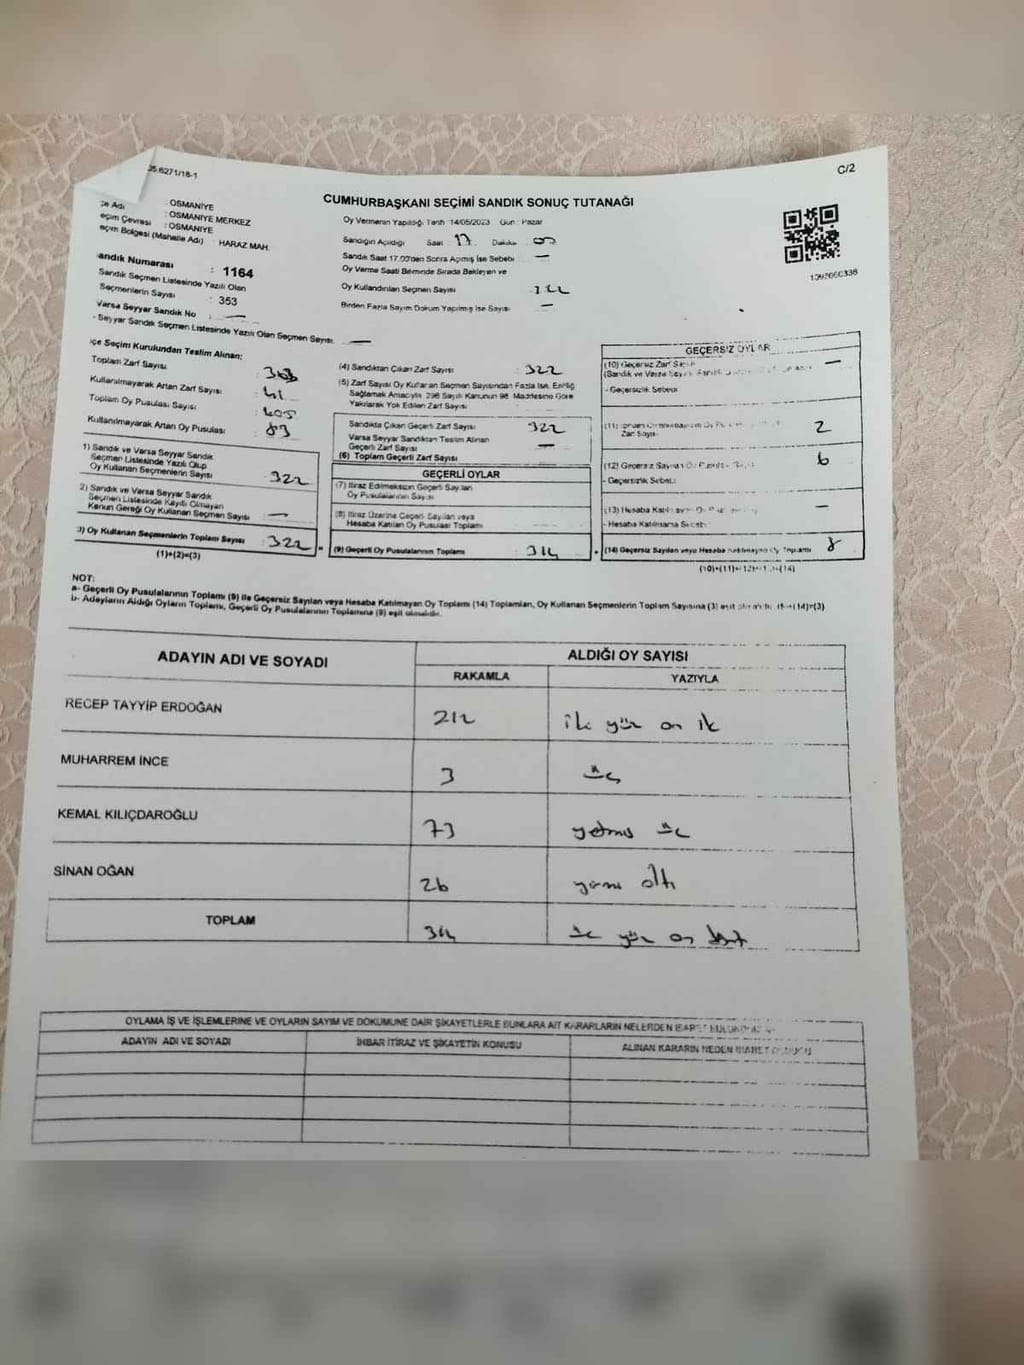 C/2
CUMHURBAŞKANI SEÇİMİ SANDIK SONUÇ TUTANAĞI
Oy Vermenin Yapıldığı Tarih :14/05/2023 Gün : Pazar
: OSMANİYE
: OSMANİYE MERKEZ
: OSMANİYE
(Mahalle Adı) : HARAZ MAH.
Sandığın Açıldığı Saat : 17 Dakika : 00
Sandık Saat 17.00'den Sonra Açılmış İse Sebebi : —
Oy Verme Saati Bitiminde Sırada Bekleyen ve
Oy Kullandırılan Seçmen Sayısı
Birden Fazla Sayım Döküm Yapılmış İse Sayısı : —
andık Numarası : 1164
Sandık Seçmen Listesinde Yazılı Olan
Seçmenlerin Sayısı : 353
Varsa Seyyar Sandık No : —
- Seyyar Sandık Seçmen Listesinde Yazılı Olan Seçmen Sayısı : —
çe Seçim Kurulundan Teslim Alınan;
Toplam Zarf Sayısı : 363
Kullanılmayarak Artan Zarf Sayısı : 41
Toplam Oy Pusulası Sayısı : 405
Kullanılmayarak Artan Oy Pusulası : 83
1) Sandık ve Varsa Seyyar Sandık
Seçmen Listesinde Yazılı Olup
Oy Kullanan Seçmenlerin Sayısı : 322
2) Sandık ve Varsa Seyyar Sandık
Seçmen Listesinde Kayıtlı Olmayan
Kanun Gereği Oy Kullanan Seçmen Sayısı : —
3) Oy Kullanan Seçmenlerin Toplam Sayısı : 322
(1)+(2)=(3)
(4) Sandıktan Çıkan Zarf Sayısı : 322
(5) Zarf Sayısı Oy Kullanan Seçmen Sayısından Fazla İse, Eşitliği
Sağlamak Amacıyla 298 Sayılı Kanunun 98. Maddesine Göre
Yakılarak Yok Edilen Zarf Sayısı
Sandıkta Çıkan Geçerli Zarf Sayısı : 322
Varsa Seyyar Sandıktan Teslim Alınan
Geçerli Zarf Sayısı : —
(6) Toplam Geçerli Zarf Sayısı
GEÇERLİ OYLAR
(7) İtiraz Edilmeksizin Geçerli Sayılan
Oy Pusulalarının Sayısı
(8) İtiraz Üzerine Geçerli Sayılan veya
Hesaba Katılan Oy Pusulası Toplamı
(9) Geçerli Oy Pusulalarının Toplamı : 314
GEÇERSİZ OYLAR
(10) Geçersiz Zarf Sayısı : —
- Geçersizlik Sebebi
(11) Zarf Sayısı : 2
(12) Geçersiz Sayılan Oy : 6
- Geçersizlik Sebebi
(13) Hesaba : —
- Hesaba Katılmama Sebebi
(14) Geçersiz Sayılan veya Hesaba Katılmayan Oy Toplamı : 8
NOT:
a- Geçerli Oy Pusulalarının Toplamı (9) ile Geçersiz Sayılan veya Hesaba Katılmayan Oy Toplamı (14) Toplamları, Oy Kullanan Seçmenlerin Toplam Sayısına (3) eşit
b- Adayların Aldığı Oyların Toplamı, Geçerli Oy Pusulalarının Toplamına (9) eşit olmalıdır.
ADAYIN ADI VE SOYADI ALDIĞI OY SAYISI
RAKAMLA YAZIYLA
RECEP TAYYİP ERDOĞAN 212 iki yüz on iki
MUHARREM İNCE 3 üç
KEMAL KILIÇDAROĞLU 73 yetmiş üç
SİNAN OĞAN 26 yirmi altı
TOPLAM 314 üç yüz on dört
OYLAMA İŞ VE İŞLEMLERİNE VE OYLARIN SAYIM VE DÖKÜMÜNE DAİR ŞİKAYETLERLE BUNLARA AİT KARARLARIN NELERDEN İBARET
ADAYIN ADI VE SOYADI İHBAR İTİRAZ VE ŞİKAYETİN KONUSU ALINAN KARARIN NEDEN İBARET